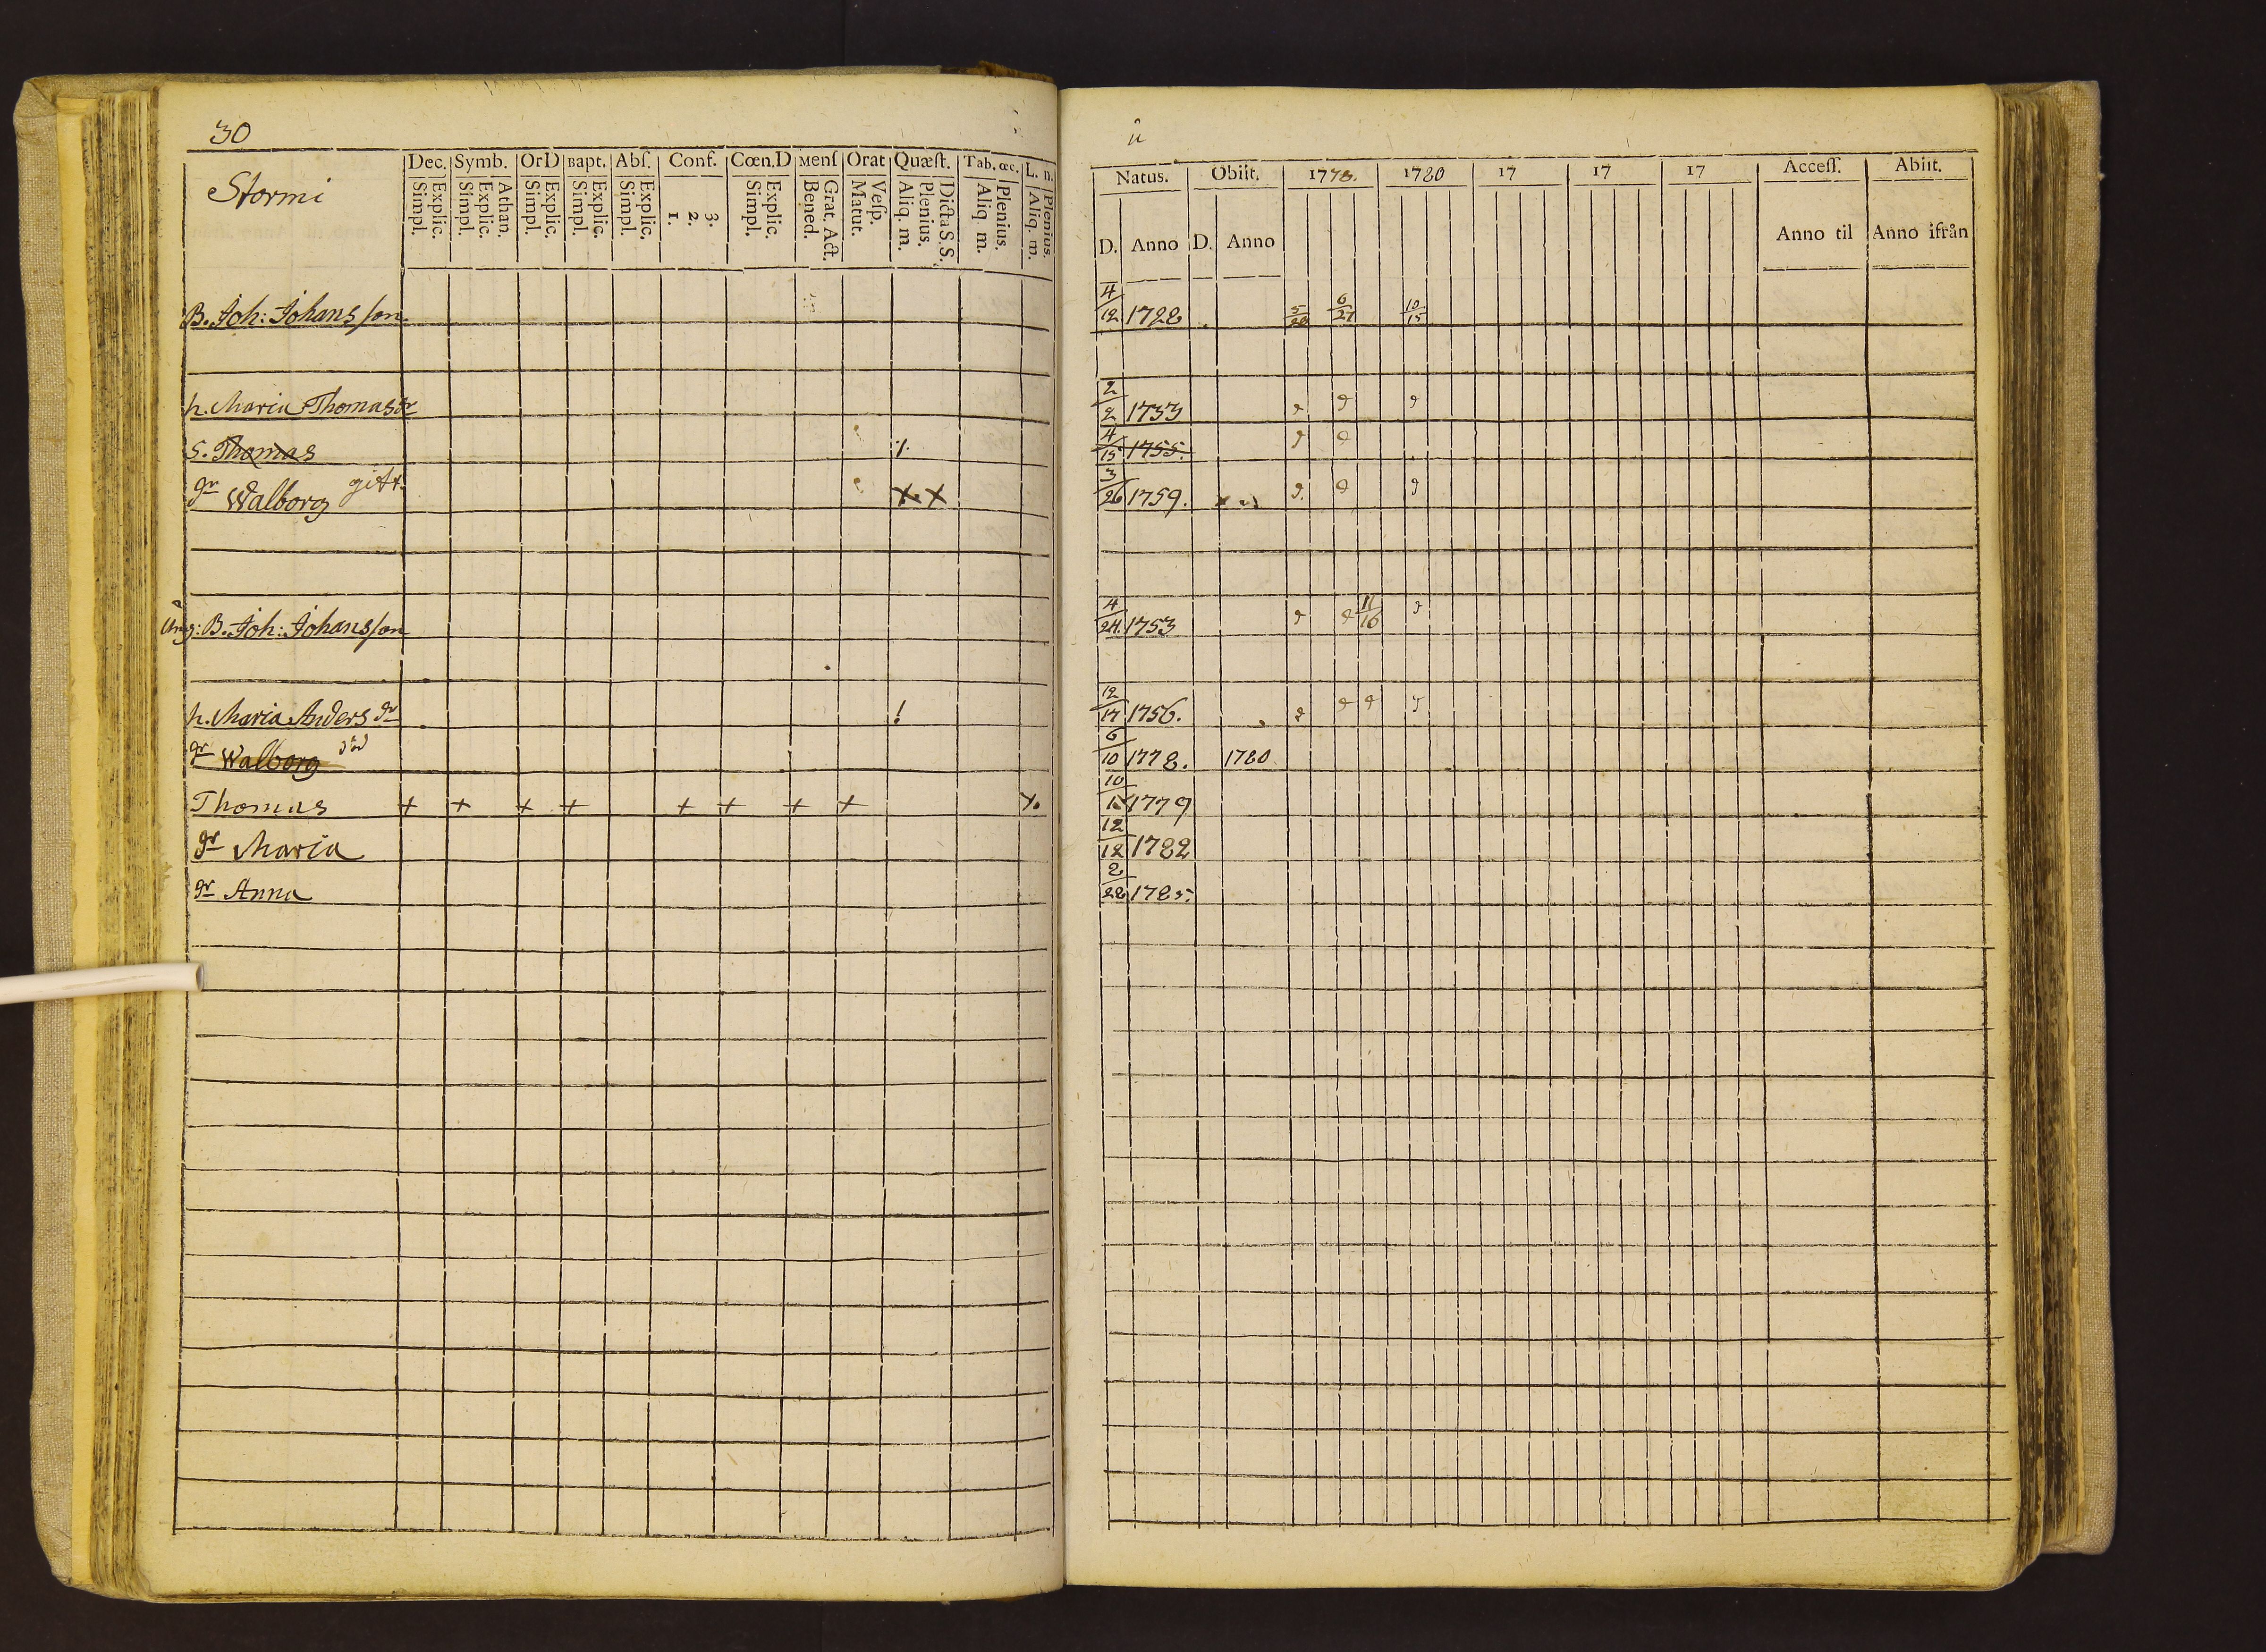 30
Dec. Symb. OrD Bapt. Abſ. Conf. Cœn.D Menſ Orat Quæſt. Tab. œc. L. n.
Stormi
Simpl. Explic. Simpl. Explic. Athan. Simpl. Explic. Simpl. Explic. Simpl. Explic. 1. 2. 3. Simpl. Explic. Bened. Grat. Act. Matut. Veſp. Aliq. m. Plenius. Dicta S. S. Aliq m. Plenius. Aliq. m. Plenius.
B. Joh: Johansson
h. Maria Thomas dr
S. Thomas ⁒
dr Walborg gift. x. x
Ung: B. Joh: Johansson
h. Maria Anders dr !
dr Walborg död
Thomas + + + + + + + + x.
dr Maria
dr Anna
Natus. Obiit. 1778. 1780 17 17 17 Acceſſ. Abiit.
D. Anno D. Anno Anno til Anno ifrån
4/12 1728 5/28 6/27 10/15
2/2 1733
4/15 1755.
3/26 1759.
4/24. 1753 11/16
12/17 1756.
6/10 1778. 1780
10/ 1779
12/12 1782
2/22 1785.